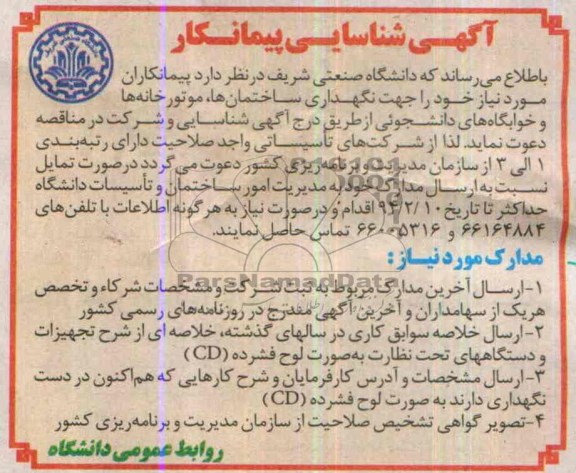 آگهی شناسایی پیمانکار
باطلاع می‌رساند که دانشگاه صنعتی شریف درنظر دارد پیمانکاران
مورد نیاز خود را جهت نگهداری ساختمان‌ها، موتورخانه‌ها
و خوابگاه‌های دانشجوئی ازطریق درج آگهی شناسایی و شرکت در مناقصه
دعوت نماید. لذا از شرکت‌های تأسیساتی واجد صلاحیت دارای رتبه‌بندی
۱ الی ۳ از سازمان مدیریت و برنامه‌ریزی کشور دعوت می گردد درصورت تمایل
نسبت به ارسال مدارک خود به مدیریت امور ساختمان و تأسیسات دانشگاه
حداکثر تا تاریخ ۹۴/۲/۱۰ اقدام و درصورت نیاز به هرگونه اطلاعات با تلفن‌های
۶۶۱۶۴۸۸۴ و ۶۶۰۰۵۳۱۶ تماس حاصل نمایند.
مدارک مورد نیاز:
۱-ارسال آخرین مدارک مربوط به ثبت شرکت و مشخصات شرکاء و تخصص
هریک از سهامداران و آخرین آگهی مندرج در روزنامه‌های رسمی کشور
۲-ارسال خلاصه سوابق کاری در سالهای گذشته، خلاصه ای از شرح تجهیزات
و دستگاههای تحت نظارت به‌صورت لوح فشرده (CD)
۳-ارسال مشخصات و آدرس کارفرمایان و شرح کارهایی که هم‌اکنون در دست
نگهداری دارند به صورت لوح فشرده (CD)
۴-تصویر گواهی تشخیص صلاحیت از سازمان مدیریت و برنامه‌ریزی کشور
روابط عمومی دانشگاه
ParsNamadData